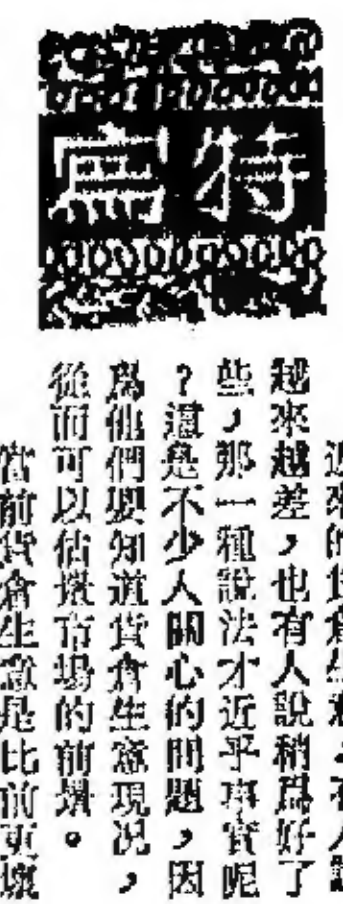 特寫
近來的貨倉生意，有人說
越來越差，也有人說稍爲好了
些，那一種說法才近乎事實呢
？還是不少人關心的問題，因
爲他們要知道貨倉生意現況，
從而可以估量市場的前景。
當前貨倉生意是比前更壞